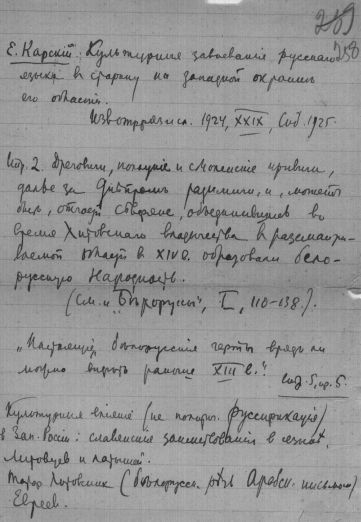 259
258
Е. Карскій: Культурныя завоеванія русскаго
языка в старину на западной окраинѣ
его области.
1924, XXIX, 1925.
Стр. 2. Дреговичи, полоцкие и смоленские кривичи,
далѣе за Днѣпромъ радимичи, и, можетъ
быть, отчасти сѣверяне, объединившись во
время Литовскаго владычества в разсматри-
ваемой области в XIV в. образовали бело-
русскую народность.
(См. и "Бѣлоруссы", I, 110-138.).
"Настоящие бѣлорусския черты врядъ ли
можно видеть раньше XIII в."
стр. 5.
Культурное влияние (не полит. руссификація)
в Зап. Росіи: славянские заимствования в языкѣ
Литовцев и латышей.
Татар Литовских (бѣлорусск. рѣчь Арабск. письмом)
Евреев.